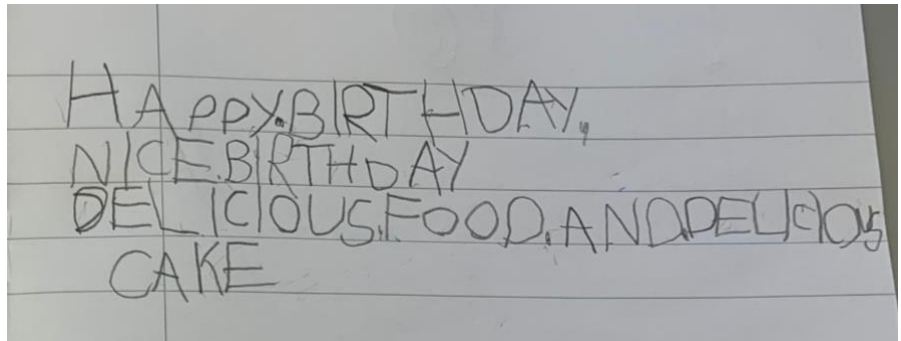 HAPPY.BIRTHDAY,
NICE.BIRTHDAY
DELICIOUS.FOOD.AND.DELICIOUS
CAKE